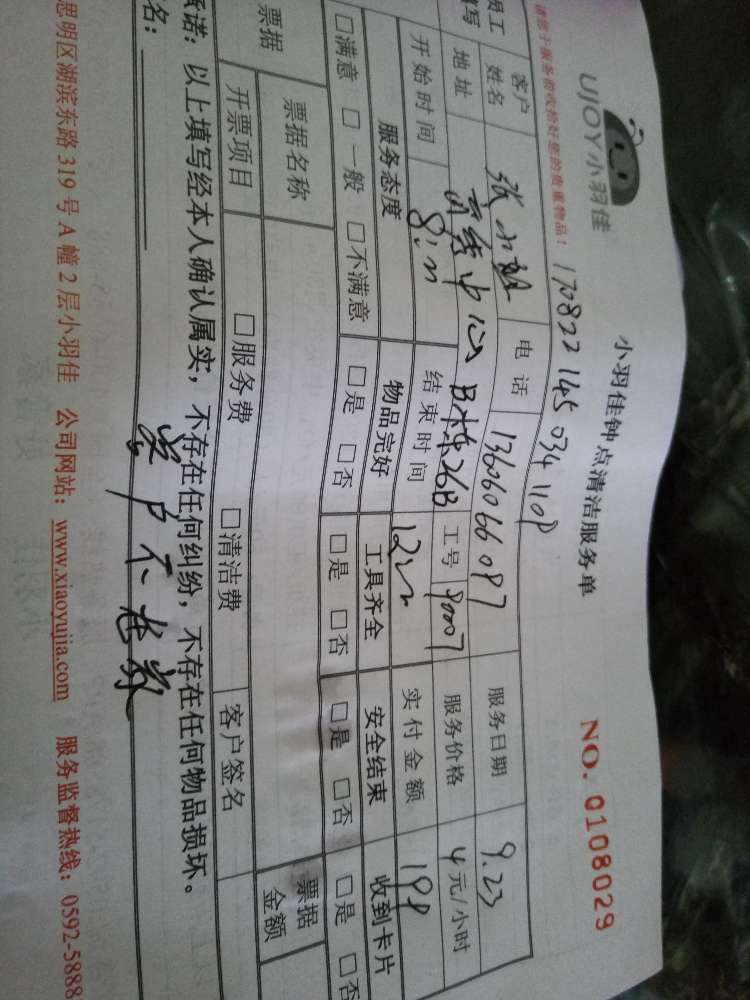 UJOY小羽佳
小羽佳钟点清洁服务单
NO. 0108029
请您于服务前收拾好您的贵重物品!
170822145034110P
员工
填写
客户
姓名
张小姐
电话
13606066087
服务日期
9.23
地址
中心B栋26B
工号
90007
服务价格
4元/小时
开始时间
结束时间
实付金额
服务态度
物品完好
工具齐全
安全结束
收到卡片
□满意 □一般 □不满意
□是 □否
□是 □否
□是 □否
□是 □否
票据
票据名称
票据
金额
开票项目
□服务费
□清洁费
客户签名
承诺:以上填写经本人确认属实,不存在任何纠纷,不存在任何物品损坏。
名:
客户不在家
思明区湖滨东路319号A幢2层小羽佳 公司网站:www.xiaoyujia.com 服务监督热线:0592-5888